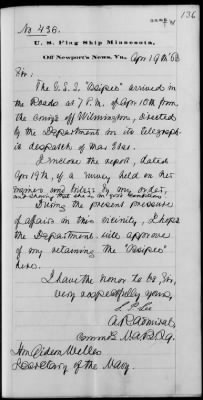 136
No. 436.
U. S. Flag Ship Minnesota,
Off Newport's News, Va., Apr 19th '63
Sir:
The U.S.S. "Osipee" arrived in
the Roads at 7 P.M. of Apr 18th from
the comg off Wilmington, directed
by the Department in its telegraph-
ic despatch of Mar 31st.
I enclose the report, dated
Apr 19th, of a survey held on her
engines and boilers by my order,
and showing that she is in good condition.
During the present pressure
of affairs in this vicinity, I hope
the Department will approve
of my retaining the "Osipee"
here.
I have the honor to be, Sir,
very respectfully yours,
S. P. Lee
A. R. Admiral
Hon Gideon Welles
Secretary of the Navy.